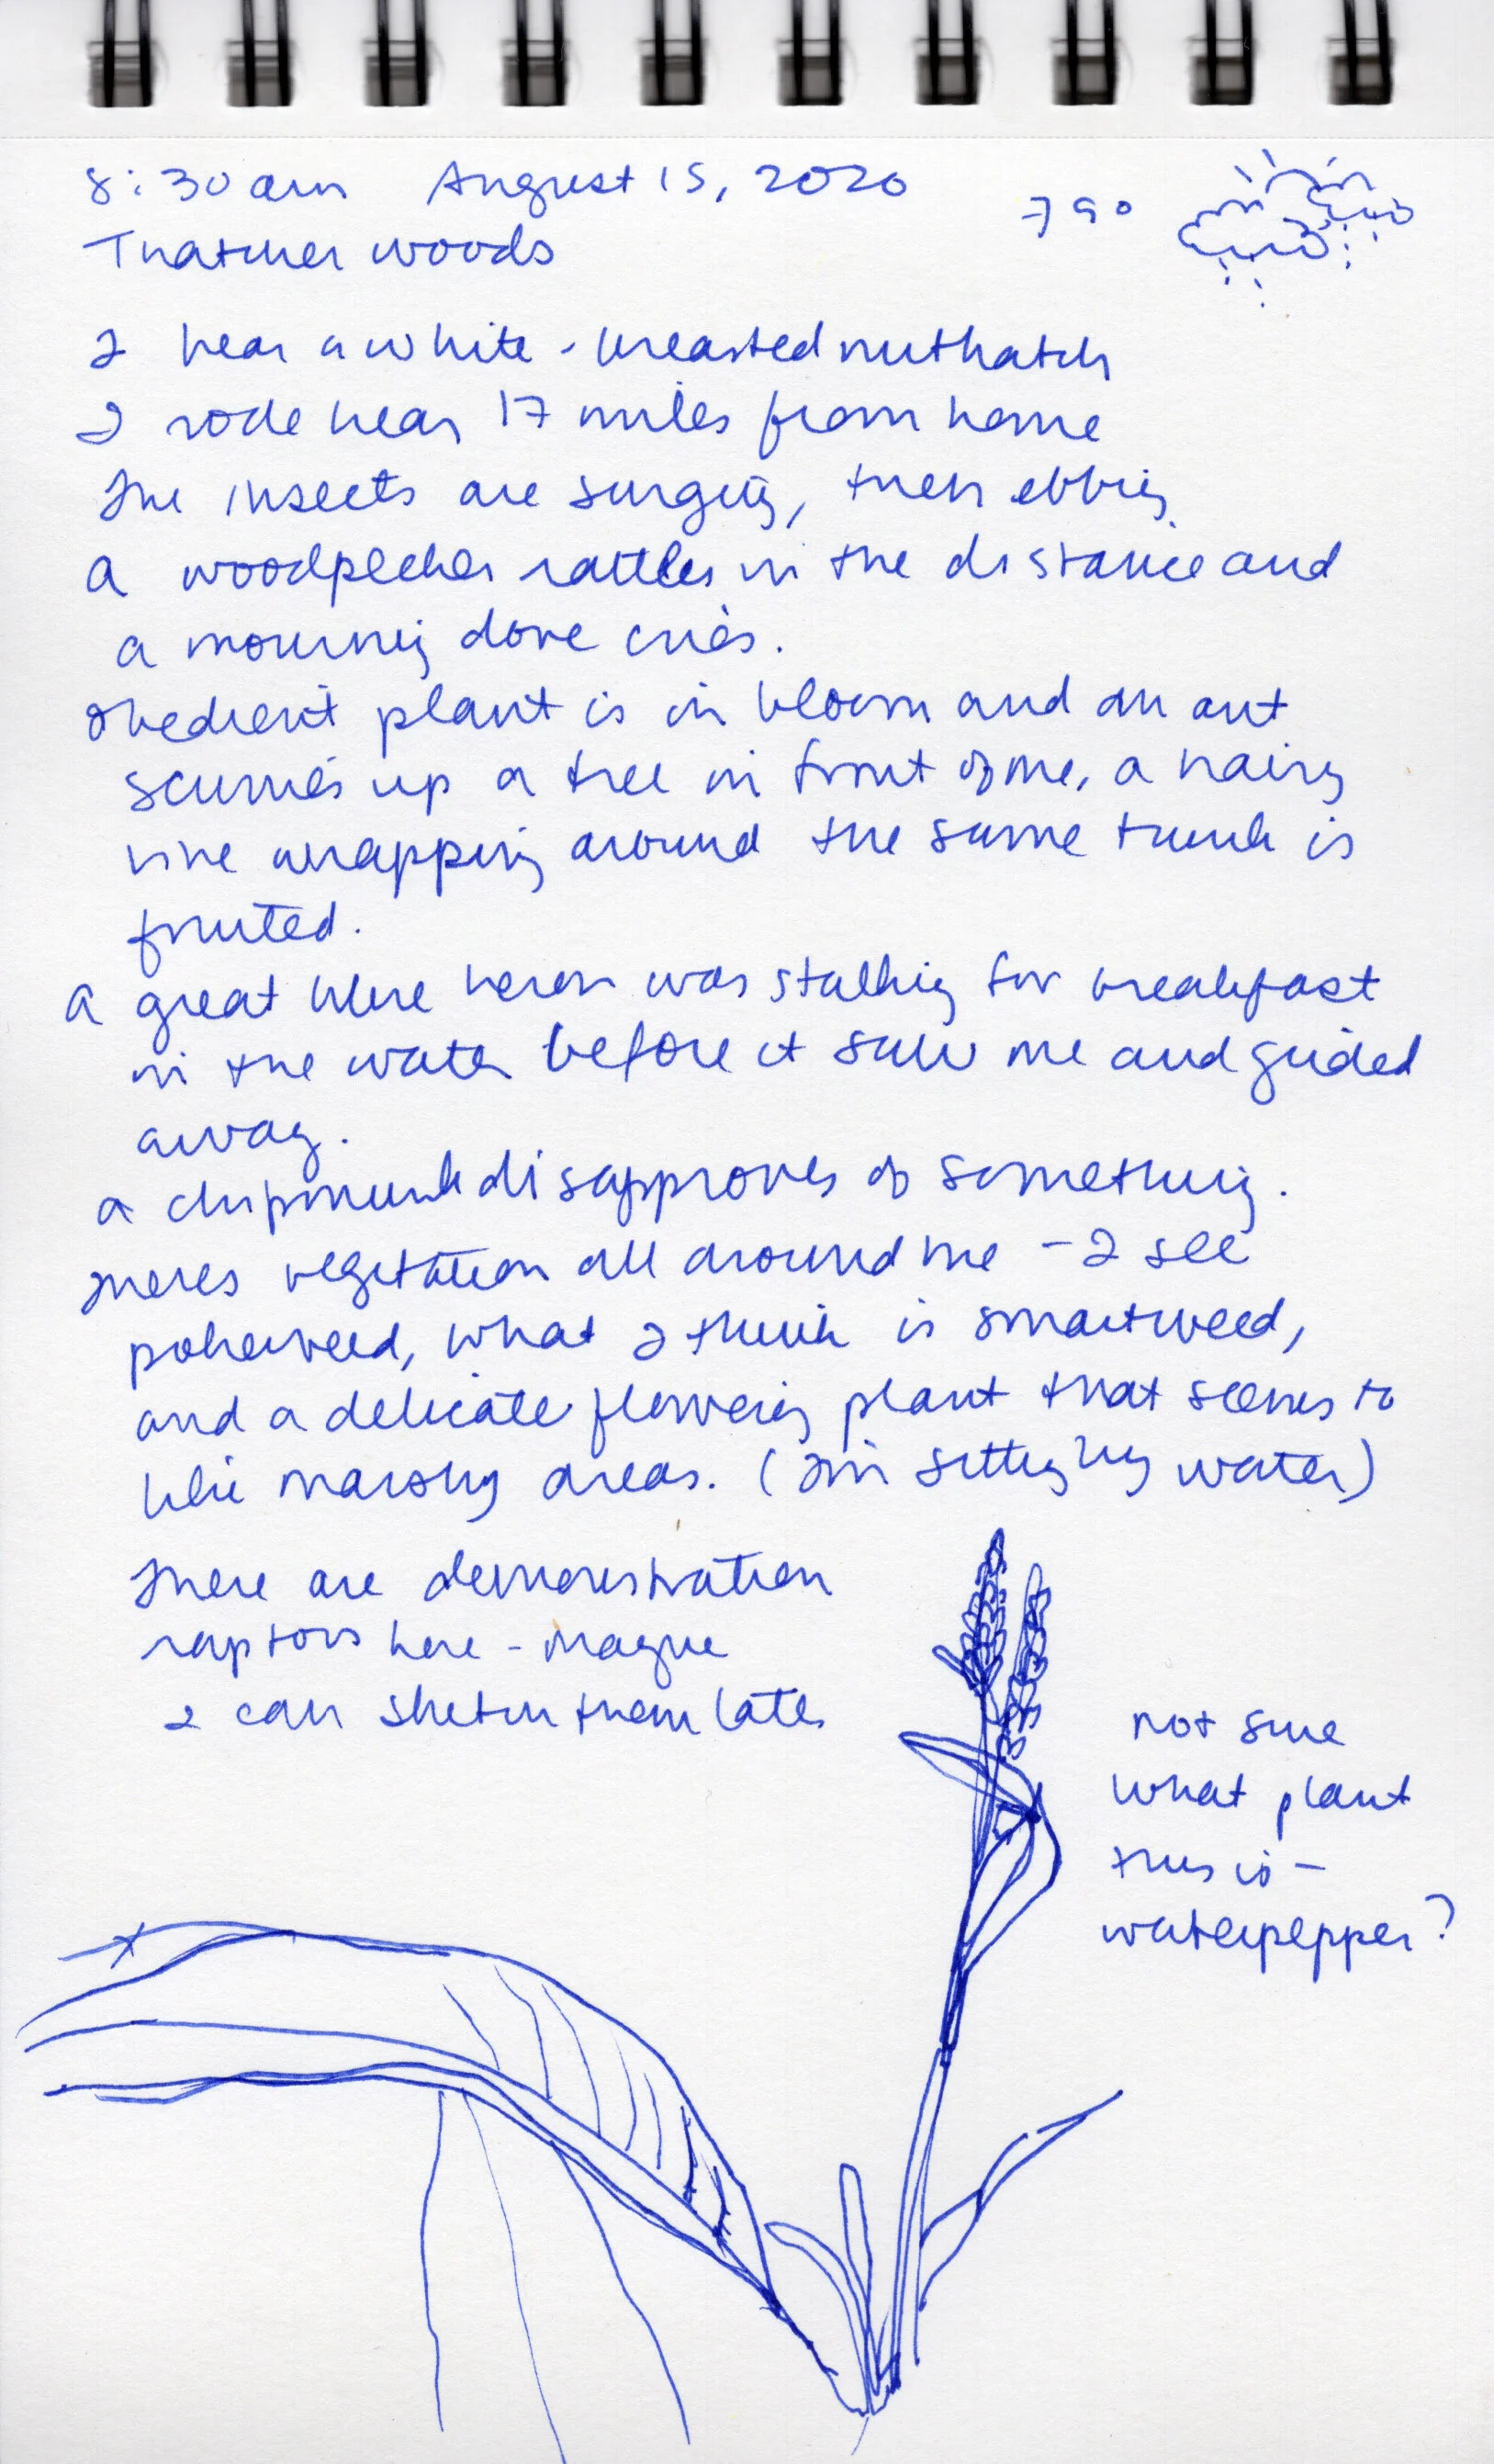 8:30 am August 15, 2020
79°
Thatcher woods
I hear a white-breasted nuthatch
I rode near 17 miles from home
The insects are surging, then ebbing
A woodpecker rattles in the distance and
a mourning dove cries.
Obedient plant is in bloom and an ant
scurries up a tree in front of me, a hairy
vine wrapping around the same trunk is
fruited.
A great blue heron was stalking for breakfast
in the water before it saw me and glided
away.
A chipmunk disapproves of something.
Theres vegetation all around me - I see
pokeweed, what I think is smartweed,
and a delicate flowering plant that seems to
like marshy areas. (I'm sitting by water)
There are demonstration
raptors here - maybe
I can sketch them later
not sure
what plant
this is -
waterpepper?